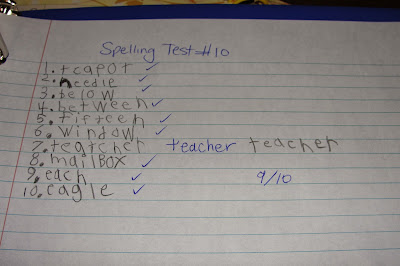 Spelling Test #10
1. teapot ✓
2. needle ✓
3. below ✓
4. between ✓
5. fifteen ✓
6. window ✓
7. teatcher teacher teacher
8. mailBox ✓
9. each ✓ 9/10
10. eagle ✓